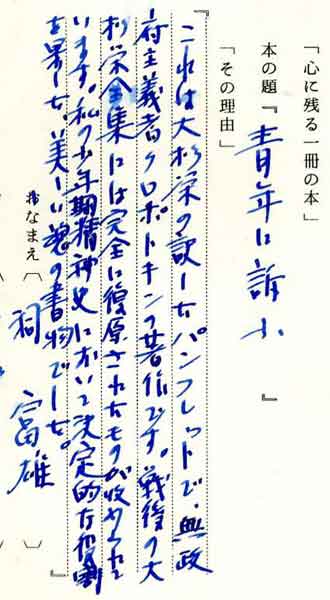 「心に残る一冊の本」
本の題『青年に訴ふ』
「その理由」
『これは大杉栄の訳したパンフレットで、無政
府主義者クロポトキンの著作です。戦後の大
杉栄全集には完全に復原されたものが収められて
います。私の少年期精神史において決定的な役割
を果した、美しい魂の書物でした。』
おなまえ〔 祠 富雄 〕